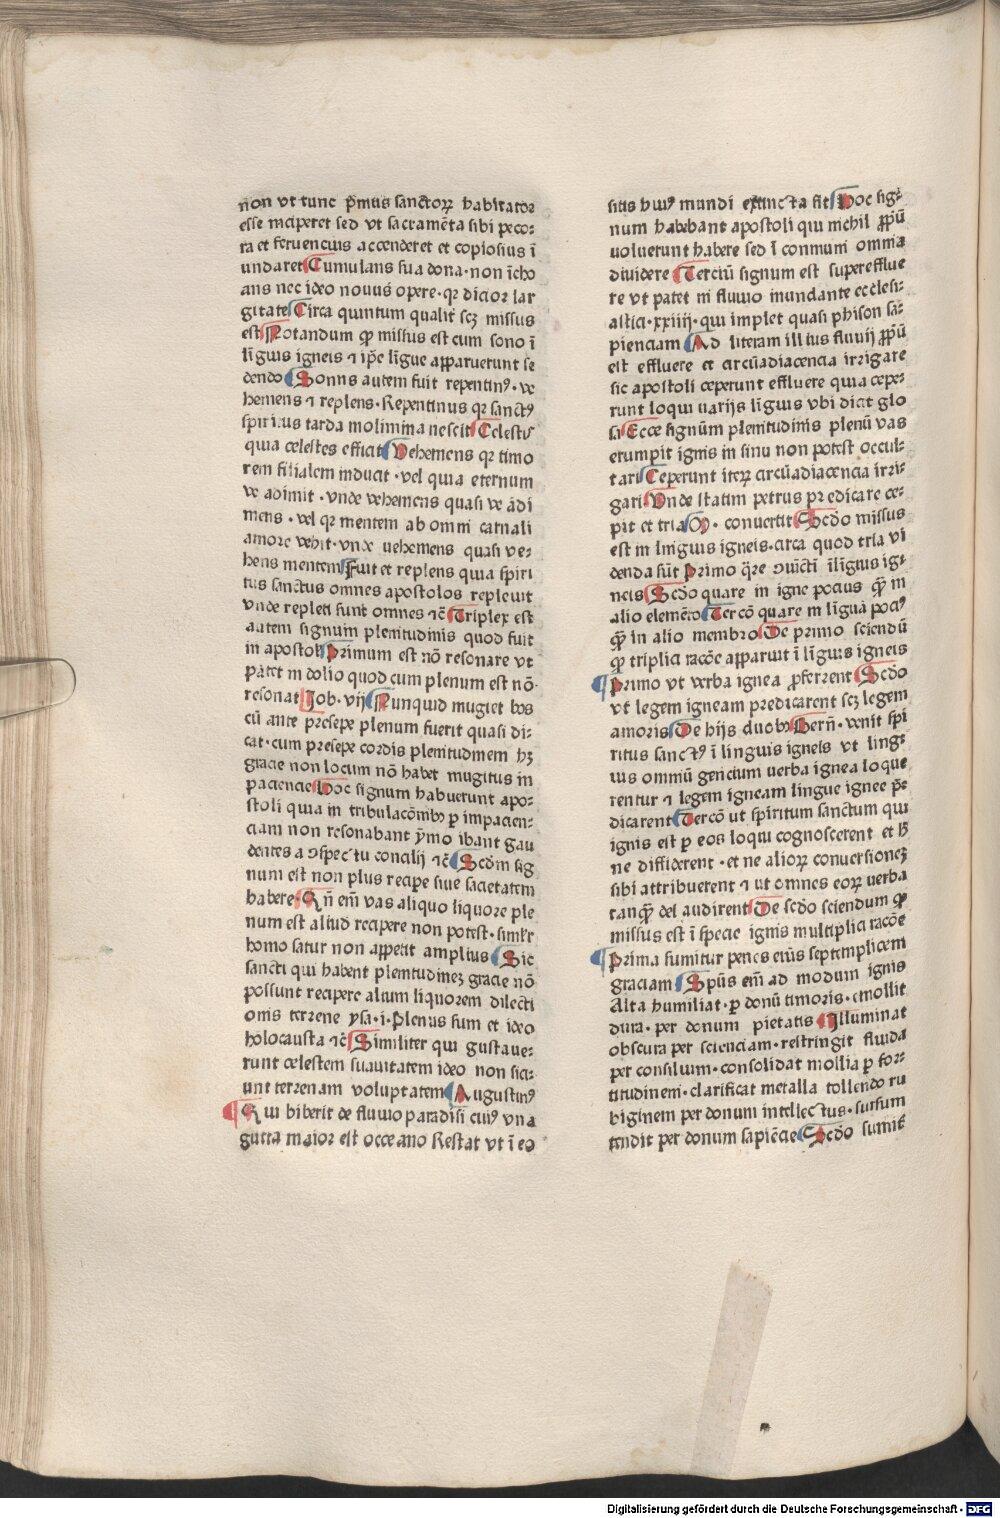 non vt tunc p̄mus sanctoꝝ habitator
esse inciperet sed vt sacramēta sibi peco⸗
ra et feruencius accenderet et copiosius ī
undaret Cumulans sua dona·non īcho
ans nec ideo nouus opere·qꝛ dicior lar
gitate Circa quintum qualit̄ scꝫ missus
est Notandum ꝙ missus est cum sono ī
līguis igneis ⁊ ip̄e līgue apparuerunt se
dendo Sonus autem fuit repentinꝰ·ve
hemens ⁊ replens·Repentinus qꝛ sanctꝰ
spiritus tarda molimina nescit Celestis
quia celestes efficit Vehemens qꝛ timo
rem filialem inducit·vel quia eternum
ve adimit·vnde vehemens quasi ve ādi
mens·vel qꝛ mentem ab omni carnali
amore vehit·vnde uehemens quasi ve⸗
hens mentem Fuit et replens quia spiri
tus sanctus omnes apostolos repleuit
vnde repleti sunt omnes ⁊c̄ Triplex est
autem signum plenitudinis quod fuit
in apostolis Primum est nō resonare vt
patet in dolio quod cum plenum est nō
resonat Job·vij Nunquid mugiet bos
cū ante presepe plenum fuerit quasi di⸗
cat·cum presepe cordis plenitudinem hꝫ
gracie non locum nō habet mugitus in
paciencie Hoc signum habuerunt apo⸗
stoli quia in tribulacōibꝫ ꝑ impacien⸗
ciam non resonabant ymo ibant gau
dentes a ↄspectu concilij ⁊c̄ Scdm sig
num est non plus recipe siue sacietatem
habere Qn̄ em̄ vas aliquo liquore ple
num est aliud recipere non potest·similr
homo satur non appetit amplius Sic
sancti qui habent plenitudinēꝫ gracie nō
possunt recipere alium liquorem dilecti
onis terrene ysa·i·Plenus sum et ideo
holocausta ⁊c̄ Similiter qui gustaue⸗
runt celestem suauitatem ideo non sici⸗
unt terrenam voluptatem Augustinꝰ
Qui biberit de fluuio paradisi cuiꝰ vna
gutta maior est occeano Restat vt ī eo
sitis huiꝰ mundi extincta sit Hoc sig⸗
num habebant apostoli qui nichil ꝓpū
voluerunt habere sed ī conmuni omnia
diuidere Terciū signum est supereffIue
re vt patet in fluuio inundante ecclesi⸗
astici·xxiiij·qui implet quasi phison sa⸗
pienciam Ad literam illius fluuij ꝓpū
est effluere et circūadiacencia irrigare
sic apostoli ceperunt effluere quia cepe⸗
runt loqui uarijs līguis vbi dicit glo
sa Ecce signum plenitudinis plenū vas
erumpit ignis in sinu non potest occul⸗
tari Ceperunt iteꝝ circūadiacencia irri⸗
gari Vnde statim petrus predicare ce⸗
pit et tria M̄·conuertit Scdo missus
est in linguis igneis·circa quod tria vi
denda sūt Primo q̄re ↄuīcti īlīgius ig⸗
neis Scdo quare in igne pocius ꝙ̄ in
alio elemēto Tercō quare in līgua pociꝰ
ꝙ̄ in alio membro De primo sciendū
ꝙ triplici racōe apparuit ī līguis igneis
Primo vt verba ignea ꝓferrent Scdo
vt legem igneam predicarent scꝫ legem
amoris De hijs duobꝫ Bern̄·venit spi
ritus sanctꝰ ī linguis igneis vt ling⸗
uis omniū gencium uerba ignea loque
rentur ⁊ legem igneam lingue ignee p̄⸗
dicarent Tercō ut spiritum sanctum qui
ignis est ꝑ eos loqui cognoscerent et hͦ
ne diffiderent·et ne alioꝝ conuersionēꝫ
sibi attribuerent ⁊ ut omnes eoꝝ uerba
tanꝙ̄ dei audirent De scdo sciendum ꝙ
missus est ī specie ignis multiplici racōe
Prima sumitur penes eius septemplicem
graciam Spūs em̄ ad modum ignis
Alta humiliat·ꝑ donū timoris·emollit
dura·per donum pietatis Illuminat
obscura per scienciam·restringit fluida
per consilium·consolidat mollia ꝑ for⸗
titudinem·clarificat metalla tollendo ru
biginem per donum intellectus·sursum
tendit per donum sapiēcie Scdo sumit̄
Digitalisierung gefördert durch die Deutsche Forschungsgemeinschaft - DFG